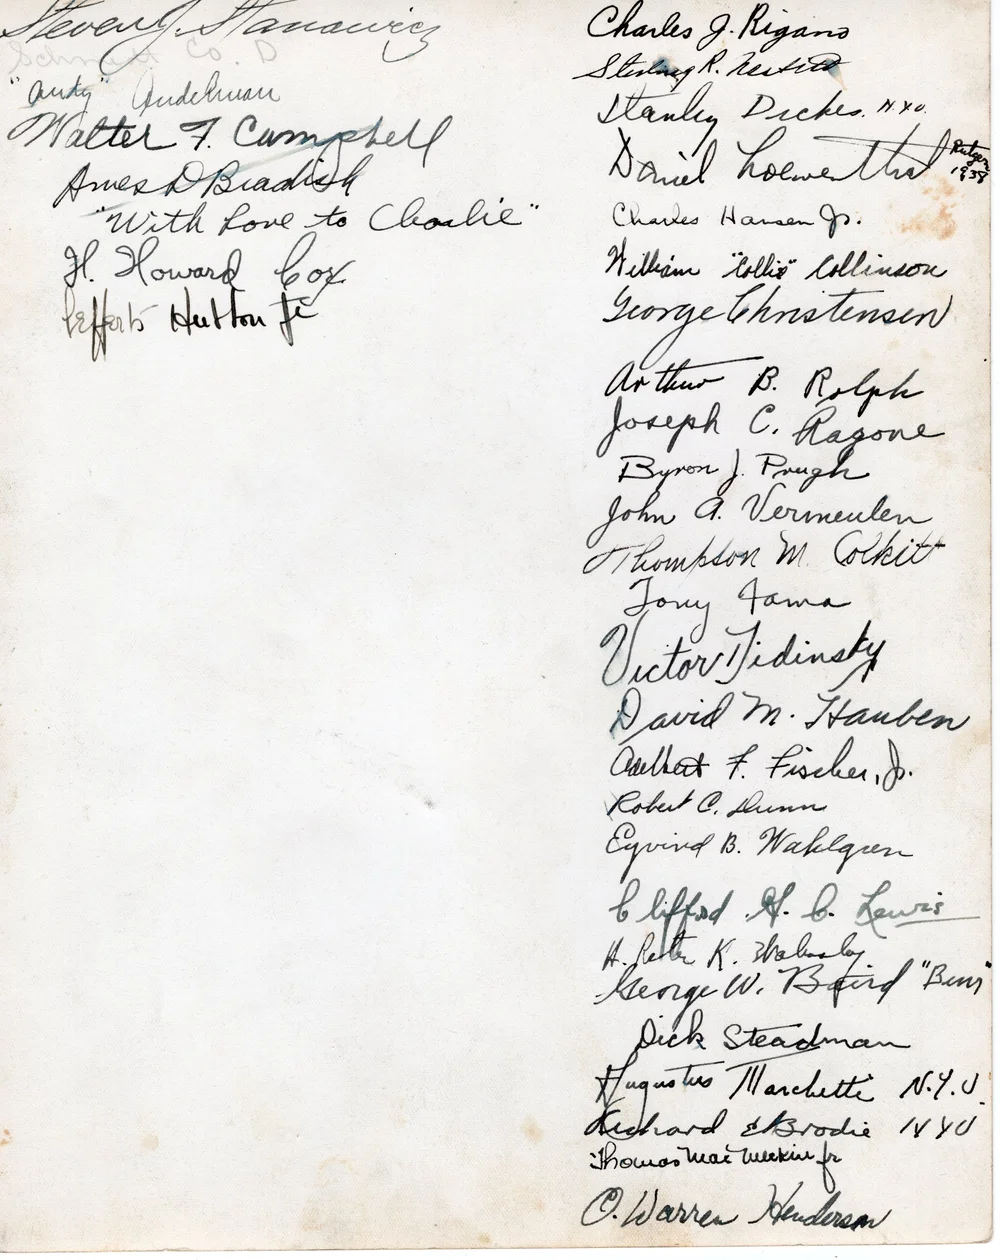 Steven J. Stanowicz
Schmidt Co. D
"Andy" Andelman
Walter F. Campbell
Ames D Bradish
"With Love to Charlie"
H. Howard Cox
Lefferts Hutton Jr
Charles J. Rigano
Sterling R.
Stanley Dickes. N.Y.U.
Daniel Loewenthal Rutgers 1938
Charles Hansen Jr.
William "Collie" Collinson
George Christensen
Arthur B. Rolph
Joseph C. Ragone
Byron J. Prugh
John A. Vermeulen
Thompson M. Colkitt
Tony Fama
Victor Tidinsky
David M. Hauben
Adelbert F. Fischer, Jr.
Robert C. Dunn
Eyvind B. Wahlgren
Clifford H. C. Lewis
H. K.
George W. Baird
Dick Steadman
Augustus Marchetti N.Y.U.
Richard E Brodie NYU
Thomas Mac Meekin Jr
O. Warren Henderson